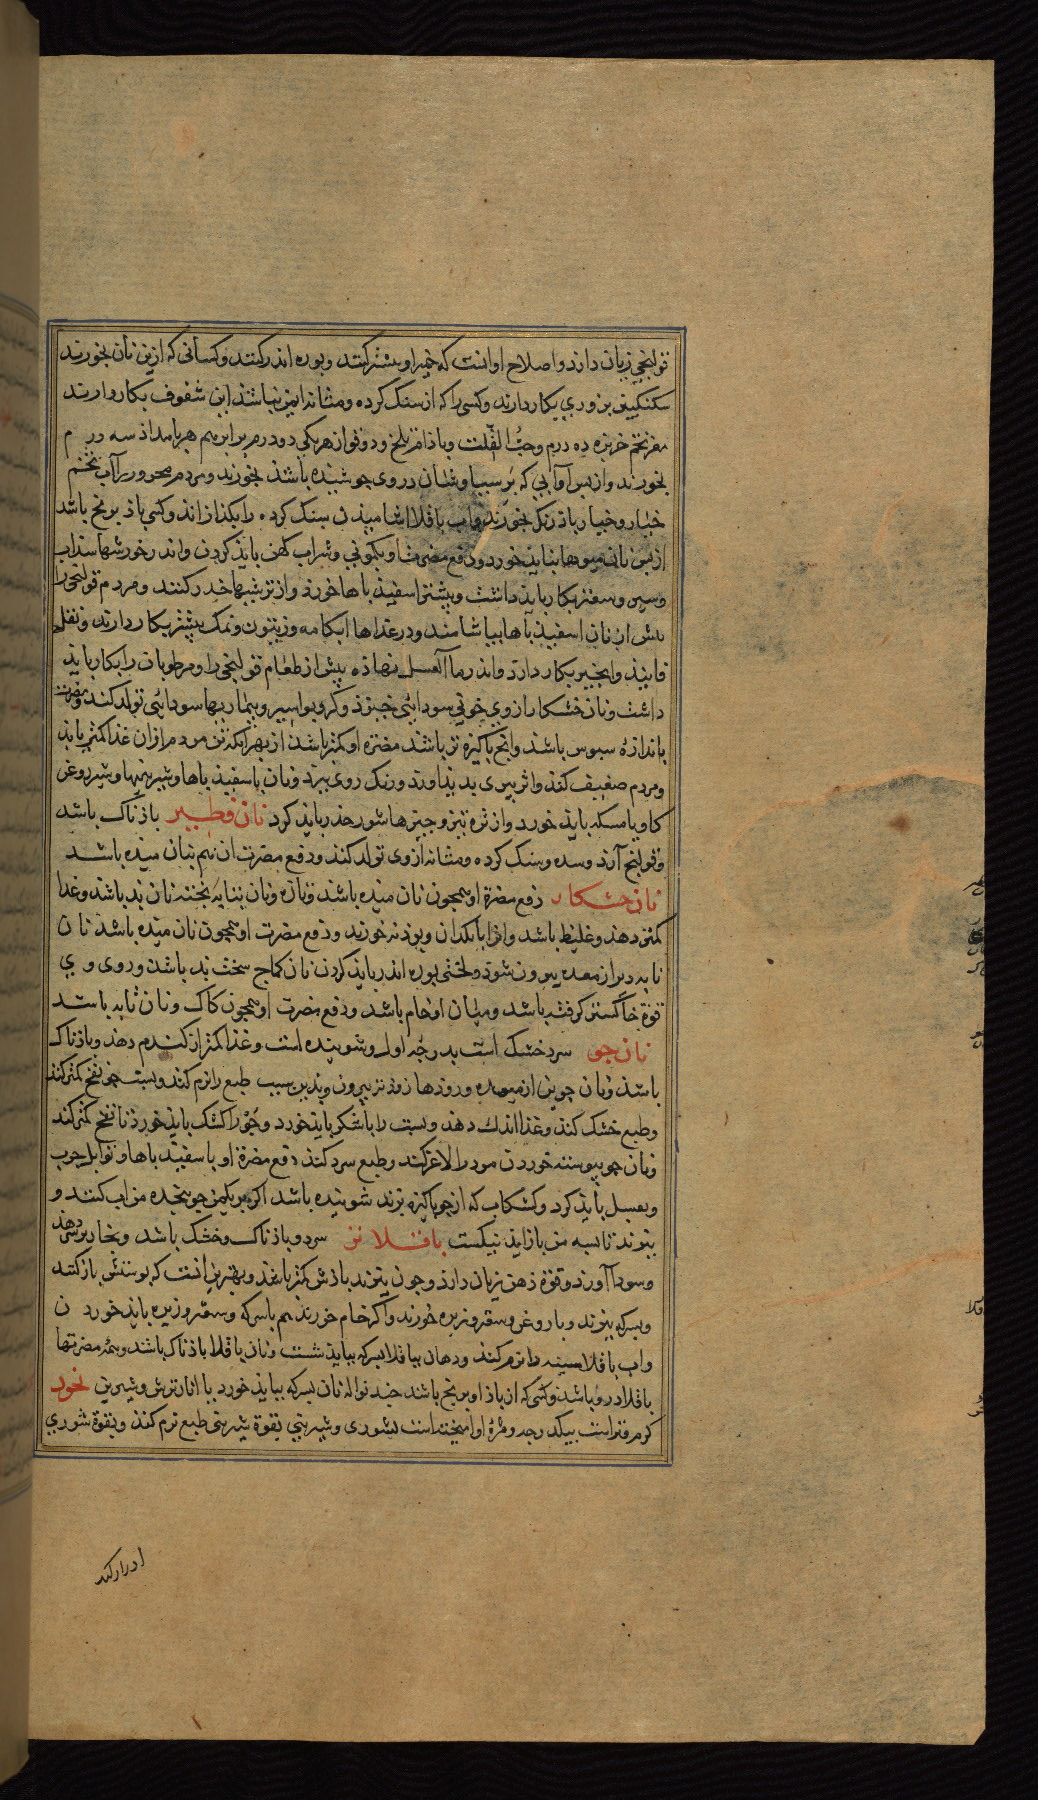 قولنجی زیان دارد و اصلاح او انست که خمیر او بیشتر کنند و بوره اندر کنند و کسانی که ازین نان بخورند
سکنکبین بزوری بکار دارند و کسی را که از سنک کرده و مثانه ایمن نباشذ این سفوف بکار دارند
مغز تخم خربزه ده درم وحبّ القلت وباذام تلخ و دوقو از هریکی دو درم برابر بهم هر بامداذ سه درم
بخورند و از پس آن آبی که پرسیاوشان در وی جوشیده باشذ بخورند و مردم محرور را آب تخم
خیار و خیار باذرنک بخورند و آب باقلا اشامیذن سنک کرده را بکذازاند و کسی باذ برنج باشد
از پس نان میوها نباید خورد و دفع مضرت او بکمونی و شراب کهن بایذ کردن و اندر خورشها سذاب
و سیر و سعتر بکار باید داشت و بیشتر اسفیذباها خورد و از ترشیها حذر کنند و مردم قولنجی را
پیش از نان اسفیذباها بیاشامند و در غذاها ابکامه و زیتون و نمک بیشتر بکار دارند و نقل
فانیذ و انجیر بکار دارد و اندر ماء العسل نهاذه پیش از طعام قولنجی را و مرطوبان را بکار باید
داشت و نان خشکار از وی خونی سودایی خیزذ و کر و بواسیر و بیماریها سودایی تولد کند و مضرت
باندازۀ سبوس باشذ و انج باکیزه تر باشذ مضرت او کمتر باشذ از بهر انکه تن مردم از ان غذا کمتر یابذ
و مردم ضعیف کنذ و اثر پیری بدید اورد و رنک روی ببرد و نان باسفیذباها و شیرینیها و شیر و روغن
کاو یا مسکه باید خورد و از تره تیز و چیزها شور حذر بایذ کرد نان فطیر باذناک باشد
و قولنج آرد و سده و سنک کرده و مثانه از وی تولد کنذ و دفع مضرت ان هم بنان میده باشد
نان خشکار دفع مضرة او همجون نان میده باشذ و نان بتابه بخته نان بد باشذ و غذا
کمتر دهذ و غلیظ باشد و دفع مضرت او همجون نان میده باشذ نان
تابه دیر از معده بیرون شوذ و لختی بوره اندر باید کردن نان کماج سخت بد باشذ و روی وی
قوة خاکستر کرفته باشد و میان او خام باشد و دفع مضرت او همجون کاک و نان تابه باشد
نان جو سرد خشک است بدرجه اول و شوینده است و غذا کمتر از کندم دهذ و باذناک
باشذ و نان جوین از معده و روذها زوذتر بیرون و بدین سبب طبع را نرم کند و بست جو نفخ کمتر کند
و طبع خشک کنذ و غذا اندک دهذ و بست را باشکر باید خورد و جو را کشک باید خورذ تا نفخ کمتر کند
و نان جو پیوسته خوردن مرد را لاغر کند و طبع سرد کنذ دفع مضرة او باسفیذباها و توابل چرب
و بعسل باید کرد و کشکاب که از جو باکیزه بزند شوینده باشد اکر بریکمن جو پنجده من اب کنند و
ببزند تا بسه من بازاید نیکست باقلا تر سرد و باذناک و خشک باشد و بخار بر دهذ
و سودا آورد و قوة ذهن زیان دارد و جون ببزند باذش کمتر باشد و بهترین انست که بوستش بازکنند
و بسرکه ببزند و با روغن و سعتر و زیره خورند و اکر خام خورند هم باسرکه و سعتر و زیره باید خوردن
و اب باقلا سینه را نرم کنذ و دهان بباقلا بسرکه بباید شست و نان باقلا باذناک باشد و همه مضرتها
باقلا درو باشذ و کسی که ازباذ او برنج باشد چند نواله نان بسرکه بباید خورد با انار ترش و شیرین نخود
کرم و تر است بیکدرجه و مزۀ او امیخته است بشوری و شیرینی بقوة شیرینی طبع نرم کنذ و بقوة شوری
ادرار کند